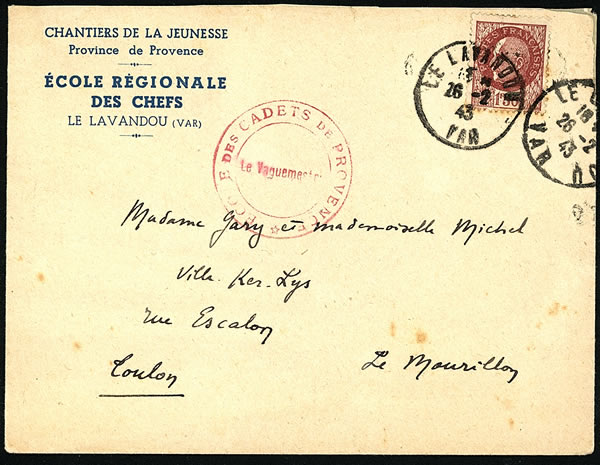 CHANTIERS DE LA JEUNESSE
Province de Provence
ÉCOLE RÉGIONALE
DES CHEFS
LE LAVANDOU (VAR)
ES FRANÇAISE
1F50
LE LAVANDOU
18
26 -2
43
VAR
LE
18
26 -2
43
VAR
ECOLE DES CADETS DE PROVENCE
Le Vaguemestre
Madame Gary et mademoiselle Michel
Villa Ker-Lys
rue Escalon
Toulon
Le Mourillon